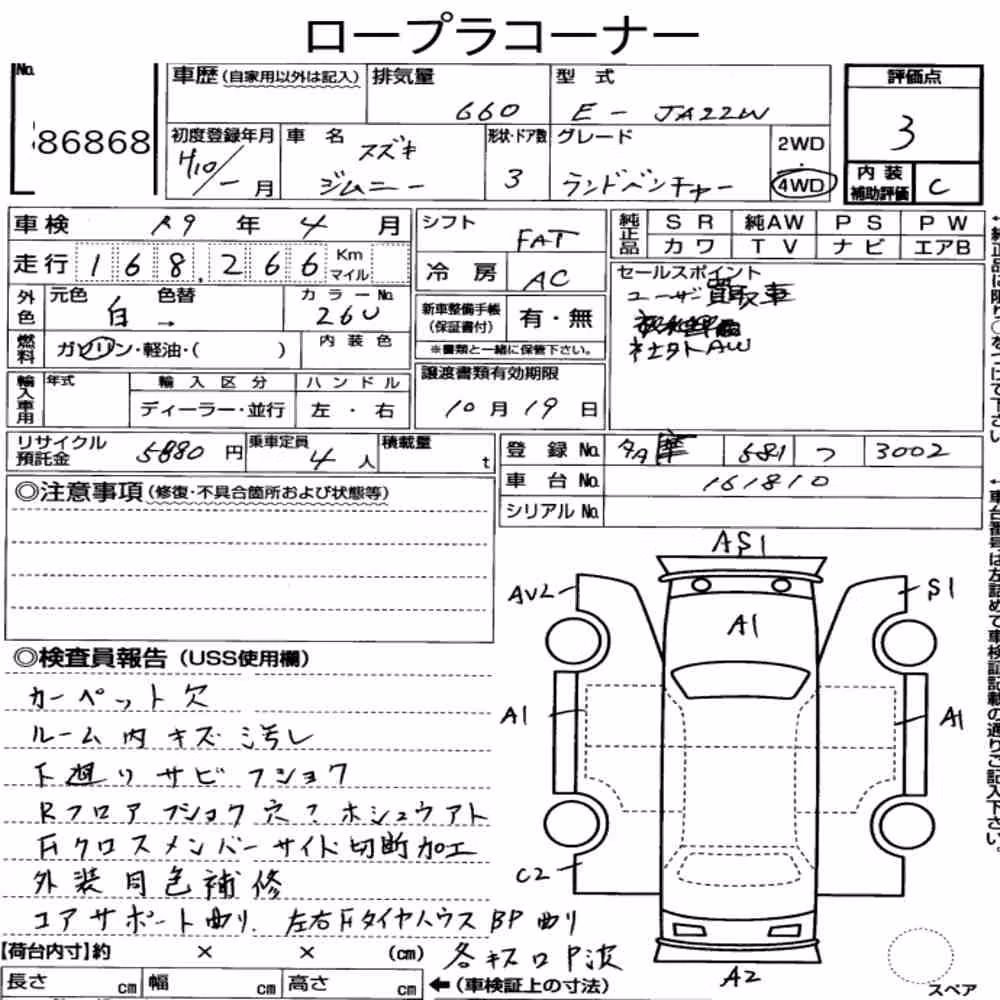 ロープラコーナー
No.
86868
車歴(自家用以外は記入)
排気量
660
型式
E - JA22W
初度登録年月
H10/- 月
車名
スズキ
ジムニー
形状・ドア数
3
グレード
ランドベンチャー
2WD
・
4WD
評価点
3
内装
補助評価
C
車検 R9年 4月
走行 168,266 Km マイル
外色 元色 白 色替 → カラーNo. 26U
燃料 ガソリン・軽油・( ) 内装色
輸入車用 年式 輸入区分 ハンドル
ディーラー・並行 左・右
シフト FAT
冷房 AC
新車整備手帳
(保証書付) 有・無
※書類と一緒に保管下さい。
譲渡書類有効期限
10月19日
純正品 SR 純AW PS PW
カワ TV ナビ エアB
セールスポイント
ユーザー買取車
社外AW
リサイクル
預託金 5880円 乗車定員 4人 積載量 t
登録No. 多摩 581 つ 3002
車台No. 161810
シリアルNo.
◎注意事項(修復・不具合箇所および状態等)
◎検査員報告(USS使用欄)
カーペット欠
ルーム内キズ汚レ
下廻りサビフショク
Rフロアフショク穴?ホシュウアト
Fクロスメンバーサイド切断加工
外装同色補修
コアサポート曲リ.左右Fタイヤハウス BP曲リ
各キズロP波
【荷台内寸】約 × × (cm)
長さ cm 幅 cm 高さ cm
←(車検証上の寸法)
AS1
AV2
S1
A1
A1
A1
C2
A2
スペア
↑純正品に限り○をつけて下さい。
↑車台番号は左詰めで車検証記載の通りご記入下さい。